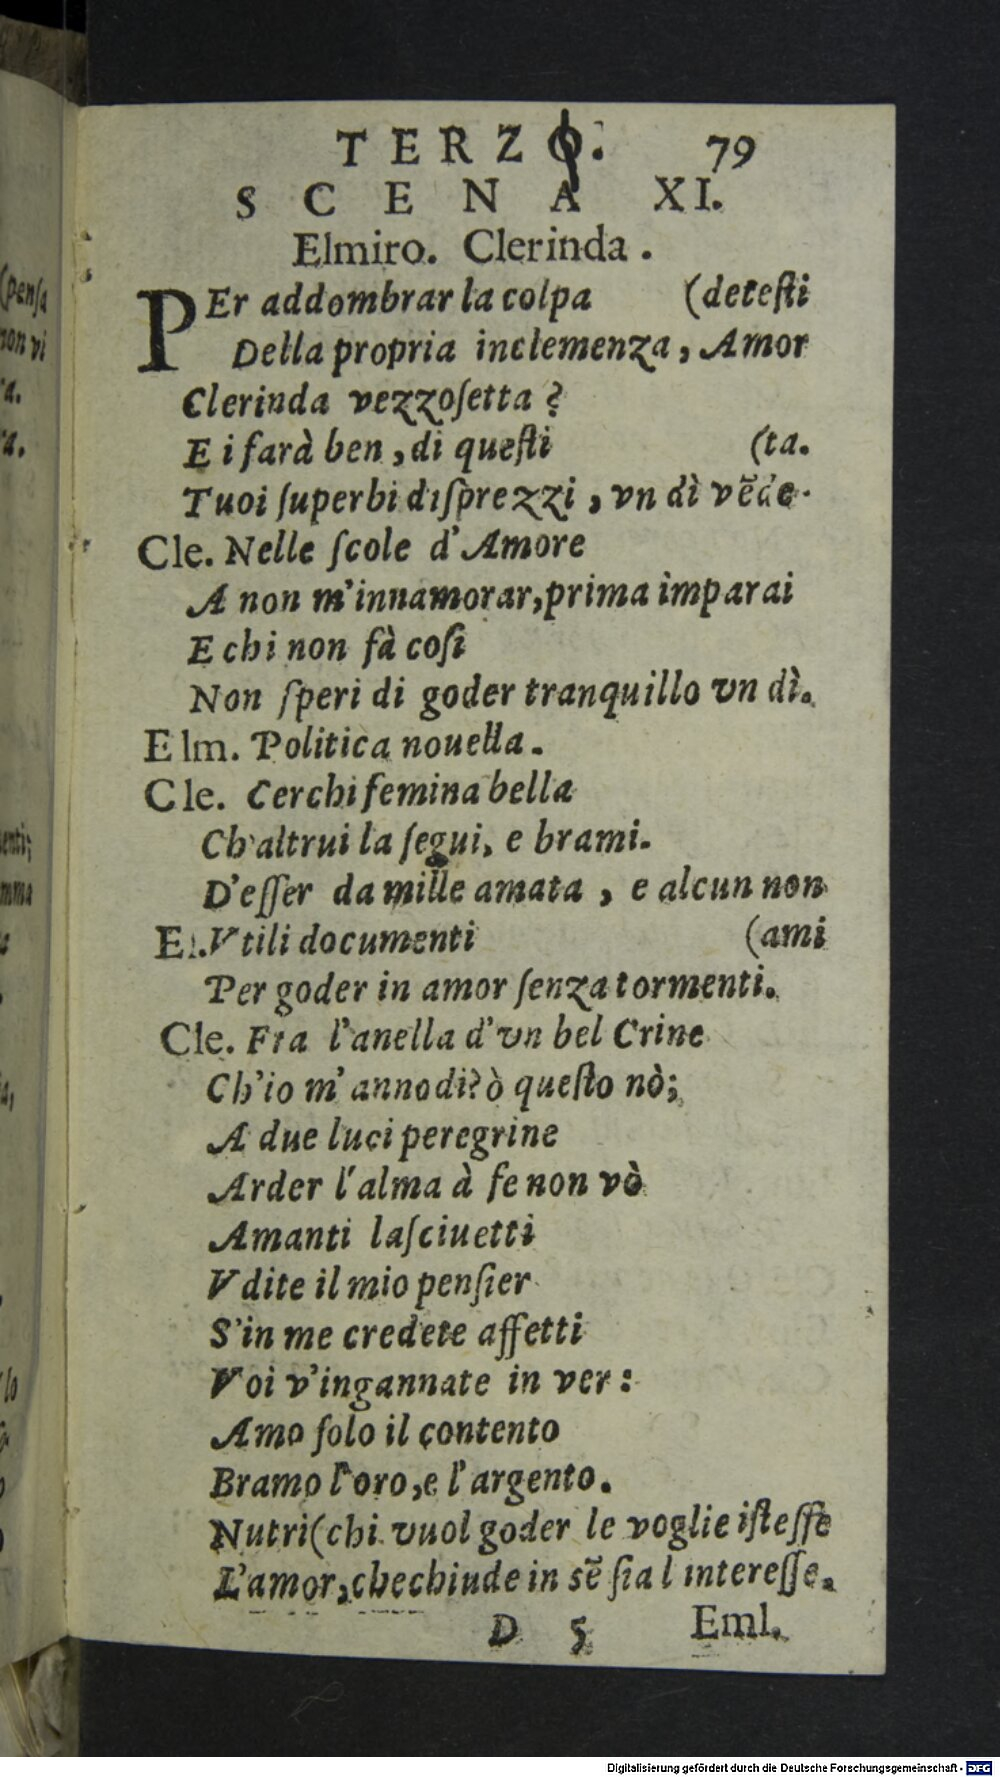 TERZO. 79
SCENA XI.
Elmiro. Clerinda.
PEr addombrar la colpa (detesti
Della propria inclemenza, Amor
Clerinda vezzoſetta?
E i farà ben, di queſti (ta.
Tuoi ſuperbi diſprezzi, vn dì vēde-
Cle. Nelle ſcole d'Amore
A non m'innamorar, prima imparai
E chi non fà coſi
Non ſperi di goder tranquillo vn dì.
Elm. Politica nouella.
Cle. Cerchi femina bella
Ch'altrui la ſegui, e brami.
D'eſſer da mille amata, e alcun non
El. Vtili documenti (ami
Per goder in amor ſenza tormenti.
Cle. Fra l'anella d'vn bel Crine
Ch'io m'annodi? ò queſto nò;
A due luci peregrine
Arder l'alma à fe non vò
Amanti laſciuetti
Vdite il mio penſier
S'in me credete affetti
Voi v'ingannate in ver:
Amo ſolo il contento
Bramo l'oro, e l'argento.
Nutri (chi vuol goder le voglie iſteſſe
L'amor, che chiude in sē ſia l intereſſe.
D 5 Eml.
(penſa
non vi
a.
a.
enti;
mma
lo
Digitalisierung gefördert durch die Deutsche Forschungsgemeinschaft - DFG